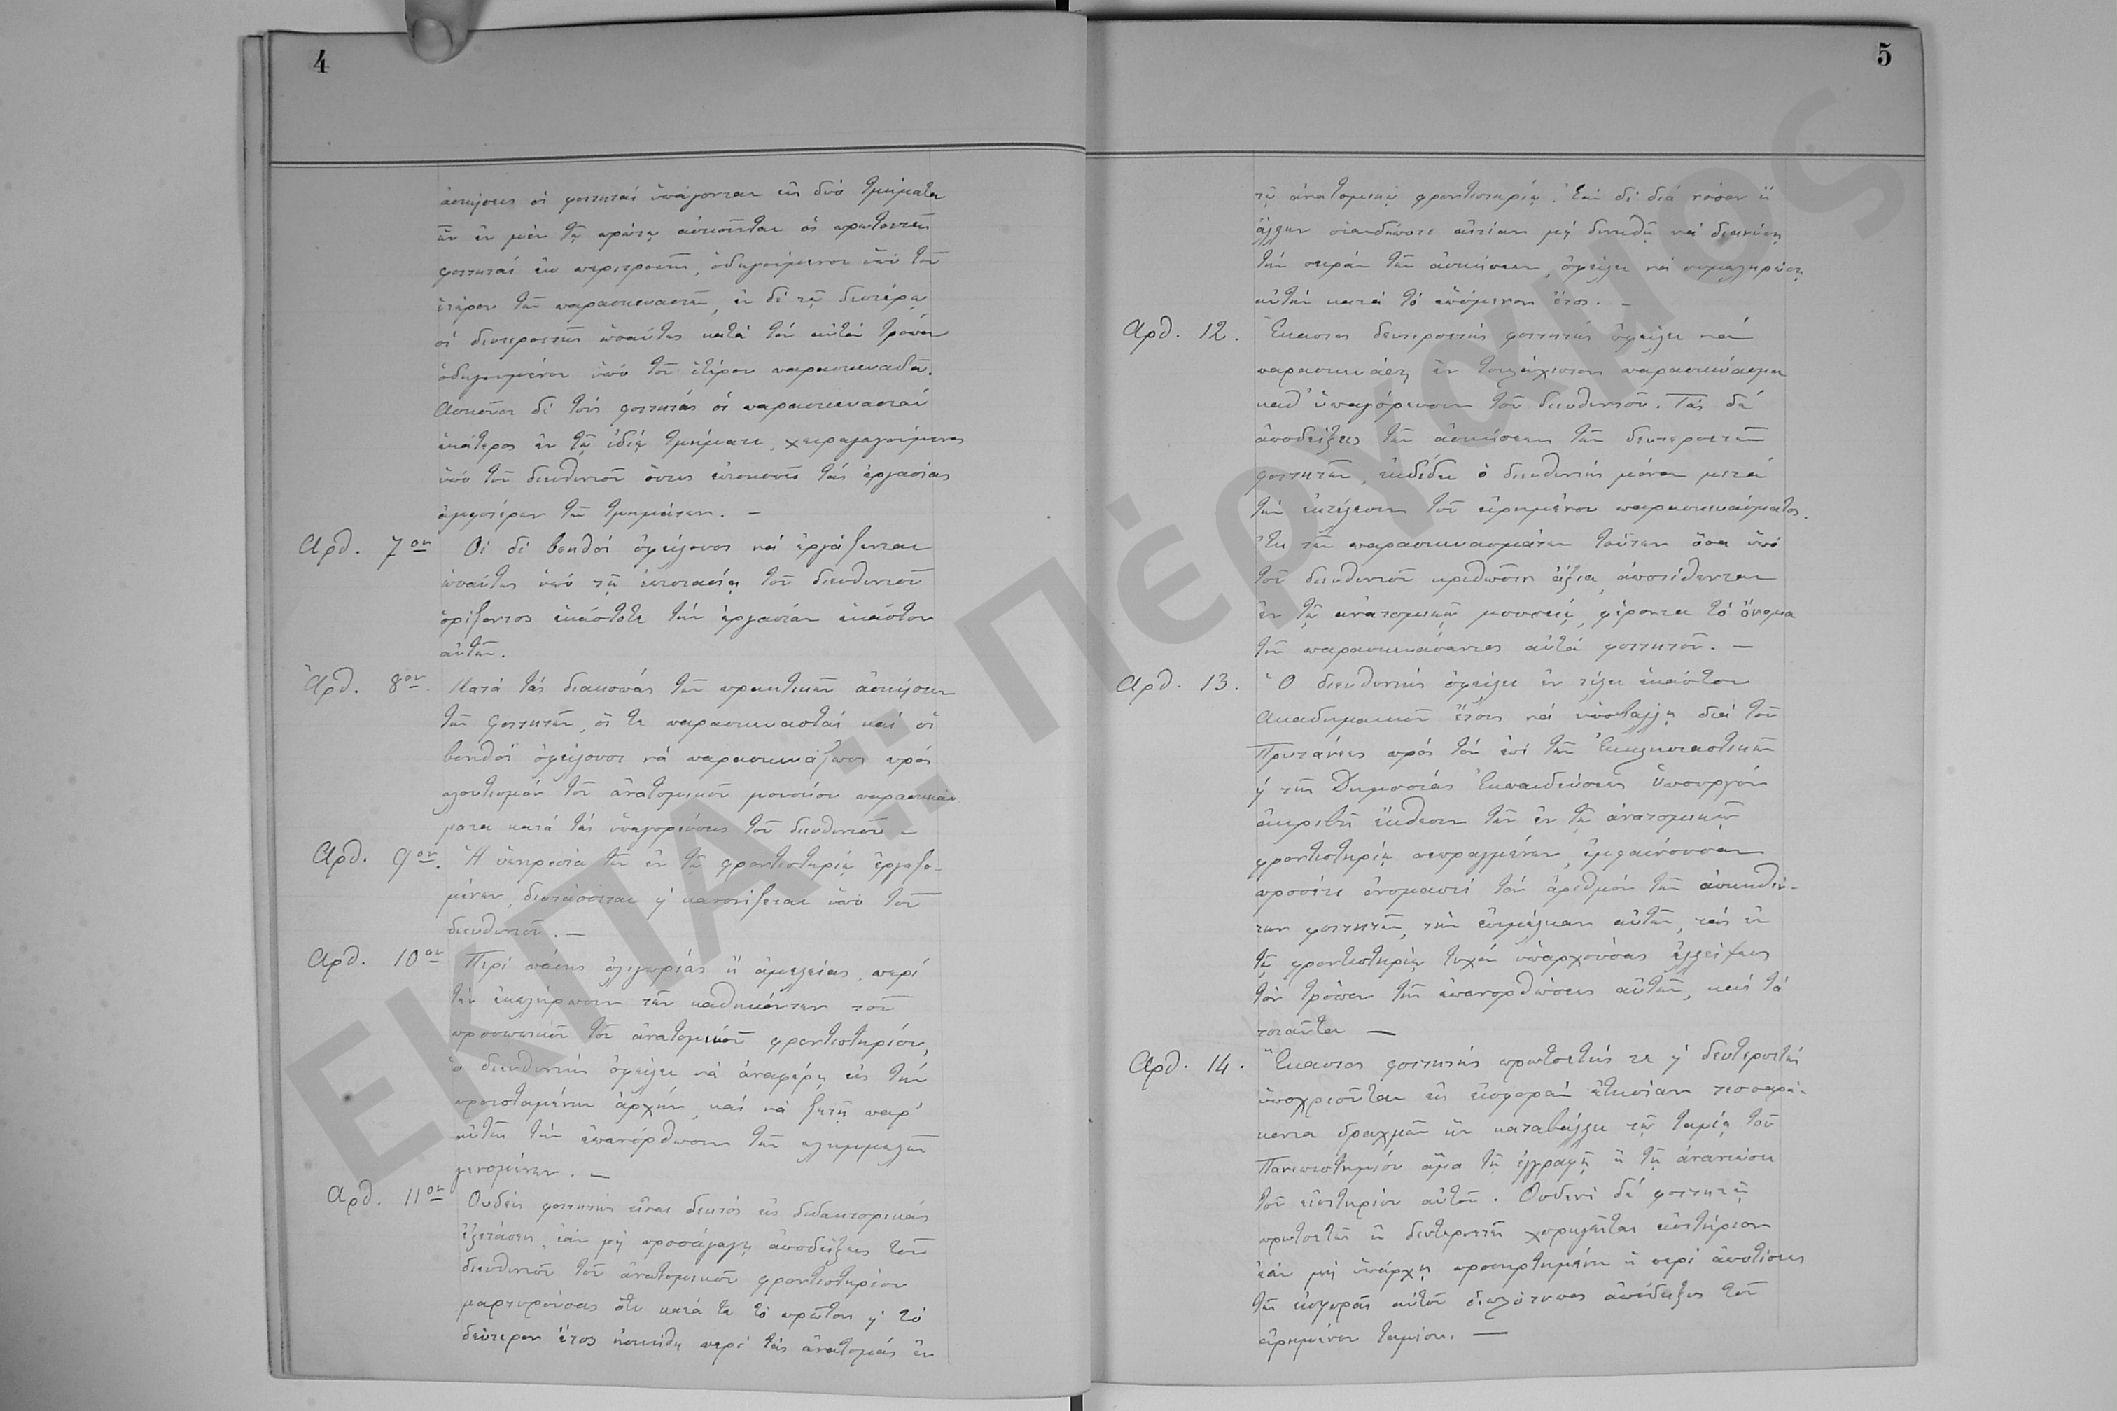 4
ἀσκήσεις οἱ φοιτηταί ὑπάγονται εἰς δύο τμήματα
ὧν ἐν μέν τῷ πρώτῳ ἀσκοῦνται οἱ πρωτοετεῖς
φοιτηταί ἐκ περιτροπῆς, ὁδηγούμενοι ὑπό τοῦ
ἑτέρου τῶν παρασκευαστῶν, ἐν δέ τῷ δευτέρῳ
οἱ δευτεροετεῖς ὡσαύτως κατά τόν αὐτόν τρόπον
ὁδηγούμενοι ὑπό τοῦ ἑτέρου παρασκευαστοῦ.
Ἀσκοῦσι δέ τούς φοιτητάς οἱ παρασκευασταί
ἑκάτερος ἐν τῷ ἰδίῳ τμήματι, χειραγωγούμενος
ὑπό τοῦ διευθυντοῦ ὅστις ἐπισκοπεῖ τάς ἐργασίας
ἀμφοτέρων τῶν τμημάτων. —
Ἀρθ. 7ον Οἱ δέ βοηθοί ὀφείλουσι νά ἐργάζωνται
ὡσαύτως ὑπό τῇ ἐπιστασίᾳ τοῦ διευθυντοῦ
ὁρίζοντος ἑκάστοτε τήν ἐργασίαν ἑκάστου
αὐτῶν.
Ἀρθ. 8ον. Κατά τάς διακοπάς τῶν πρακτικῶν ἀσκήσεων
τῶν φοιτητῶν, οἵ τε παρασκευασταί καί οἱ
βοηθοί ὀφείλουσι νά παρασκευάζωσι πρός
πλουτισμόν τοῦ ἀνατομικοῦ μουσείου παρασκευάσ
ματα κατά τάς ὑπαγορεύσεις τοῦ διευθυντοῦ –
Ἀρθ. 9ον. Ἡ ὑπηρεσία τῶν ἐν τῷ φροντιστηρίῳ ἐργαζο-
μένων, διατάσσεται ἤ κανονίζεται ὑπό τοῦ
διευθυντοῦ. —
Ἀρθ. 10ον Περί πάσης ὀλιγωρίας ἤ ἀμελείας, περί
τήν ἐκπλήρωσιν τῶν καθηκόντων τοῦ
προσωπικοῦ τοῦ ἀνατομικοῦ φροντιστηρίου,
ὁ διευθυντής ὀφείλει νά ἀναφέρῃ εἰς τήν
προϊσταμένην ἀρχήν, καί νά ζητῇ παρ'
αὐτῆς τήν ἐπανόρθωσιν τῶν πλημμελῶς
γενομένων. —
Ἀρθ. 11ον Οὐδείς φοιτητής εἶναι δεκτός εἰς διδακτορικάς
ἐξετάσεις, ἐάν μή προσαγάγῃ ἀποδείξεις τοῦ
διευθυντοῦ τοῦ ἀνατομικοῦ φροντιστηρίου
μαρτυρούσας ὅτι κατά τε τό πρῶτον ἤ τό
δεύτερον ἔτος ἠσκήθη περί τάς ἀνατομάς ἐν
5
τῷ ἀνατομικῷ φροντιστηρίῳ. Ἐάν δέ διά νόσον ἤ
ἄλλην οἱανδήποτε αἰτίαν μή δυνηθῇ νά διανύσῃ
τήν σειράν τῶν ἀσκήσεων, ὀφείλει νά συμπληρώσῃ
αὐτήν κατά τό ἑπόμενον ἔτος. –
Ἀρθ. 12. Ἕκαστος δευτεροετής φοιτητής ὀφείλει νά
παρασκευάσῃ ἕν τουλάχιστον παρασκεύασμα
καθ' ὑπαγόρευσιν τοῦ διευθυντοῦ. Τάς δέ
ἀποδείξεις τῶν ἀσκήσεων τῶν δευτεροετῶν
φοιτητῶν, ἐκδίδει ὁ διευθυντής μόνον μετά
τήν ἐκτέλεσιν τοῦ εἰρημένου παρασκευάσματος.
Ἐκ τῶν παρασκευασμάτων τούτων ὅσα ὑπό
τοῦ διευθυντοῦ κριθῶσιν ἄξια, ἀποτίθενται
ἐν τῷ ἀνατομικῷ μουσείῳ, φέροντα τό ὄνομα
τοῦ παρασκευάσαντος αὐτά φοιτητοῦ. —
Ἀρθ. 13. Ὁ διευθυντής ὀφείλει ἐν τέλει ἑκάστου
Ἀκαδημαϊκοῦ ἔτους νά ὑποβάλλῃ διά τοῦ
Πρυτάνεως πρός τόν ἐπί τῶν Ἐκκλησιαστικῶν
ἤ τῆς Δημοσίας Ἐκπαιδεύσεως Ὑπουργόν
ἀκριβῆ ἔκθεσιν τῶν ἐν τῷ ἀνατομικῷ
φροντιστηρίῳ πεπραγμένων, ἐμφαίνουσαν
προσέτι ὀνομαστί τόν ἀριθμόν τῶν ἀσκηθέν-
των φοιτητῶν, τήν ἐπιμέλειαν αὐτῶν, τάς ἐν
τῷ φροντιστηρίῳ τυχόν ὑπαρχούσας ἐλλείψεις
τόν τρόπον τῆς ἐπανορθώσεως αὐτῶν, καί τά
τοιαῦτα —
Ἀρθ. 14. Ἕκαστος φοιτητής πρωτοετής τε ἤ δευτεροετής
ὑποχρεοῦται εἰς εἰσφοράν ἐτησίαν τεσσαρά-
κοντα δραχμῶν ἥν καταβάλλει τῷ ταμίᾳ τοῦ
Πανεπιστημίου ἅμα τῇ ἐγγραφῇ ἤ τῇ ἀνανεώσει
τοῦ εἰσιτηρίου αὐτοῦ. Οὐδενί δέ φοιτητῇ
πρωτοετεῖ ἤ δευτεροετεῖ χορηγεῖται εἰσιτήριον
ἐάν μή ὑπάρχῃ προσηρτημένη ἡ περί ἀποτίσεως
τῆς εἰσφορᾶς αὐτοῦ διπλότυπος ἀπόδειξις τοῦ
εἰρημένου ταμίου. —
ΕΚΠΑ :: Πέργαμος